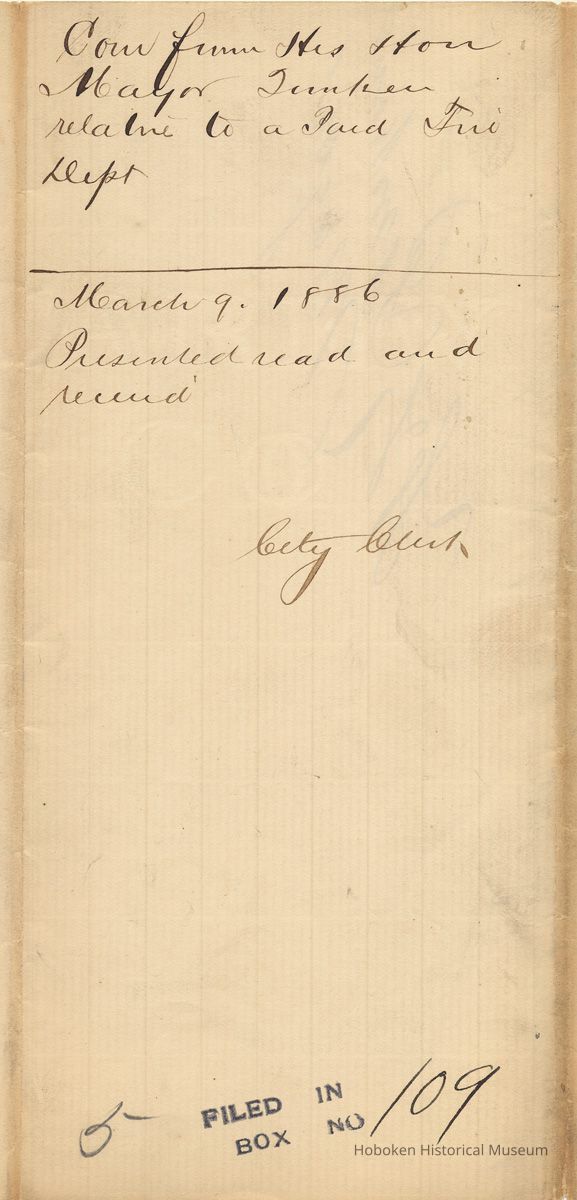 Com from His Hon
Mayor Timken
relative to a Paid Fire
Dept
March 9. 1886
Presented read and
received
City Clerk
5
FILED IN
BOX NO 109
Hoboken Historical Museum